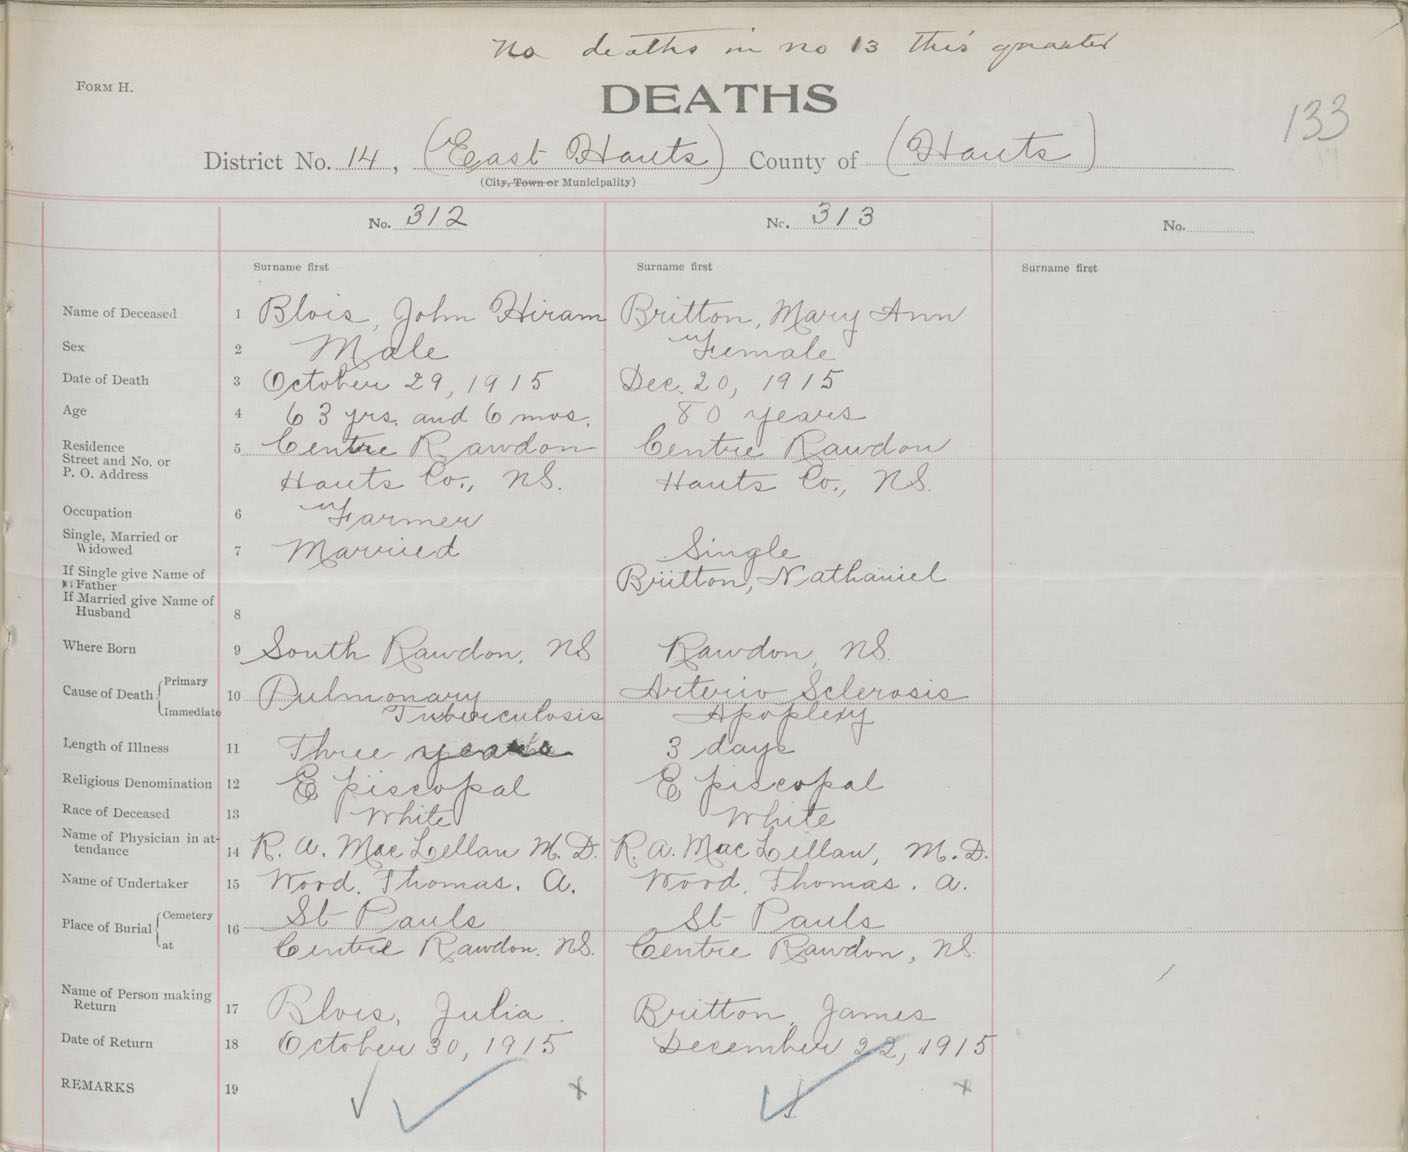 No deaths in no 13 this quarter
FORM H.
DEATHS
133
District No. 14, (East Hants) County of (Hants)
(City, Town or Municipality)
No. 312 No. 313 No.
Surname first Surname first Surname first
Name of Deceased 1 Blois, John Hiram Britton, Mary Ann
Sex 2 Male Female
Date of Death 3 October 29, 1915 Dec. 20, 1915
Age 4 63 yrs. and 6 mos. 80 years
Residence
Street and No. or
P. O. Address
5 Centre Rawdon Centre Rawdon
Hants Co., NS. Hants Co., NS.
Occupation 6 Farmer
Single, Married or
Widowed
7 Married Single
If Single give Name of
Father
Britton, Nathaniel
If Married give Name of
Husband
8
Where Born 9 South Rawdon, NS Rawdon, NS.
Cause of Death Primary 10 Pulmonary Arterio Sclerosis
Immediate Tuberculosis Apoplexy
Length of Illness 11 Three years 3 days
Religious Denomination 12 Episcopal Episcopal
Race of Deceased 13 White White
Name of Physician in at-
tendance
14 R. A. MacLellan M. D. R. A. MacLellan, M. D.
Name of Undertaker 15 Wood, Thomas. A. Wood, Thomas. A.
Place of Burial Cemetery 16 St Pauls St Pauls
at Centre Rawdon, NS. Centre Rawdon, NS.
Name of Person making
Return
17 Blois, Julia. Britton, James
Date of Return 18 October 30, 1915 December 22, 1915
REMARKS 19 x x